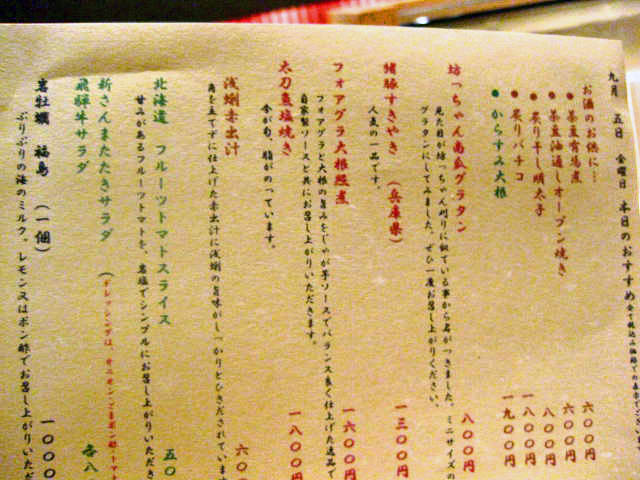 九月 五日 金曜日 本日のおすすめ
お酒のお供に…
●茶豆有馬煮 六〇〇円
●茶豆油通しオーブン焼き 六〇〇円
●炙り干し明太子 八〇〇円
●炙りバチコ 一八〇〇円
●からすみ大根 一九〇〇円
坊っちゃん南瓜グラタン 八〇〇円
見た目が坊っちゃん刈りに似ている事から名がつきました。ミニサイズの
グラタンにしてみました。ぜひ一度お召し上がりください。
猪豚すきやき (兵庫県) 一三〇〇円
人気の一品です。
フォアグラ大根煮 一六〇〇円
フォアグラと大根の旨みをじゃが芋ソースでバランス良く仕上げた逸品で
自家製ソースと共にお召し上がりいただきます。
太刀魚塩焼き 一八〇〇円
今が旬、脂がのっています。
浅蜊赤出汁 六〇
角を立てずに仕上げた赤出汁に浅蜊の旨味がしっかりとひきだされています
北海道 フルーツトマトスライス 五〇
甘みがあるフルーツトマトを、岩塩でシンプルにお召し上がりいただき
新さんまたたきサラダ
飛騨牛サラダ (ドレッシングは、オニオン・ごまポン酢・トマト 各八
岩牡蠣 福島 (一個) 一〇〇〇
ぷりぷりの海のミルク。レモン又はポン酢でお召し上がりいただ